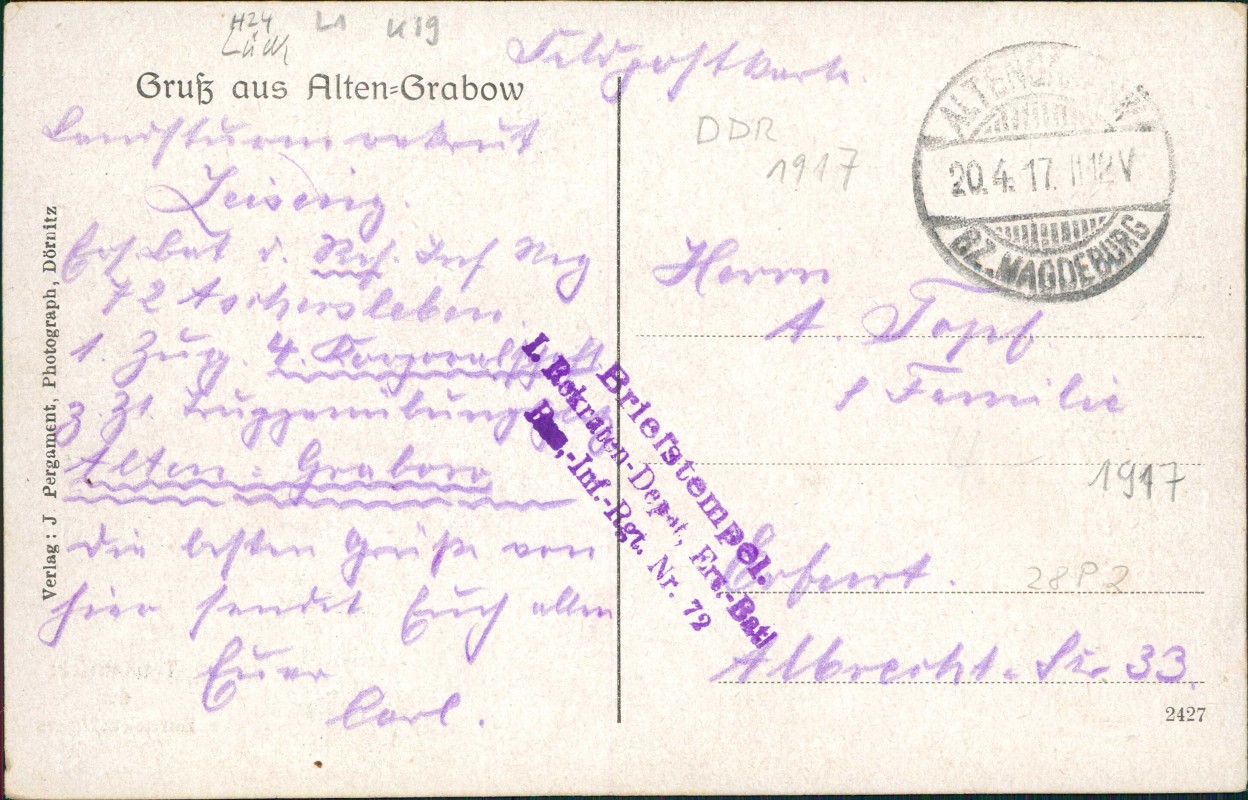 H24
L1 U19
Feldpostkarte.
Gruß aus Alten-Grabow
Landsturmrekrut
Leiserig.
Ers Bat d. Res. Inf Reg
72 Aschersleben
1. Zug. 4. Korporalschaft
z. Zt. Truppenübungsplatz
Alten-Grabow
Die besten Grüße von
hier sendet Euch allen
Euer
Carl.
Verlag: J Pergament, Photograph, Dörnitz
DDR
1917
ALTENGRABOW
20.4.17. 11-12V
BZ. MAGDEBURG
Herrn
A. Topf.
& Familie
1917
Briefstempel.
I. Rekruten-Depot, Ers.-Batl
Res.-Inf.-Rgt. Nr. 72
Erfurt.
28P2
Albrecht-Str 33.
2427